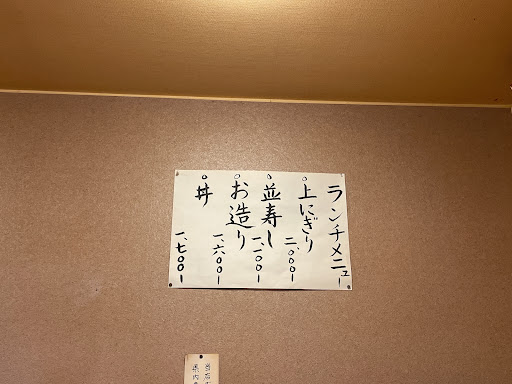 ランチメニュー
○上にぎり
二、〇〇〇ー
○並寿し
一、一〇〇ー
○お造り
一、六〇〇ー
○丼
一、七〇〇ー